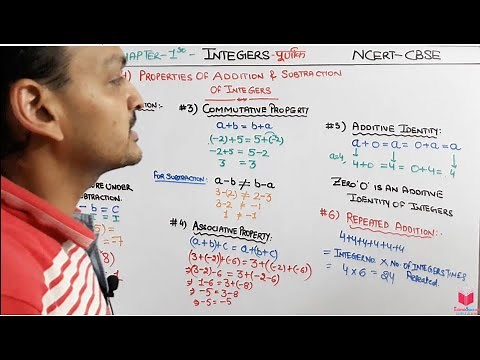 CHAPTER-1st - INTEGERS-पूर्णांक NCERT-CBSE
PROPERTIES OF ADDITION & SUBTRACTION
OF INTEGERS
#3) COMMUTATIVE PROPERTY
a+b = b+a
(-2)+5 = 5+(-2)
-2+5 = 5-2
3 = 3
FOR SUBTRACTION:
a-b ≠ b-a
3-2 ≠ 2-3
1 ≠ -1
#4) ASSOCIATIVE PROPERTY:
(a+b)+c = a+(b+c)
(3+(-2))+(-6) = 3+((-2)+(-6))
⇒ (3-2)-6 = 3+(-2-6)
⇒ 1-6 = 3+(-8)
⇒ -5 = 3-8
⇒ -5 = -5
#5) ADDITIVE IDENTITY:
a+0 = a = 0+a = a
a=4, 4+0 = 4 = 0+4 = 4
ZERO '0' IS AN ADDITIVE
IDENTITY OF INTEGERS
#6) REPEATED ADDITION:
4+4+4+4+4+4
= INTEGER NO. X NO. OF INTEGER TIMES
Repeated.
= 4×6 = 24
URE UNDER
BTRACTION.
-b = C